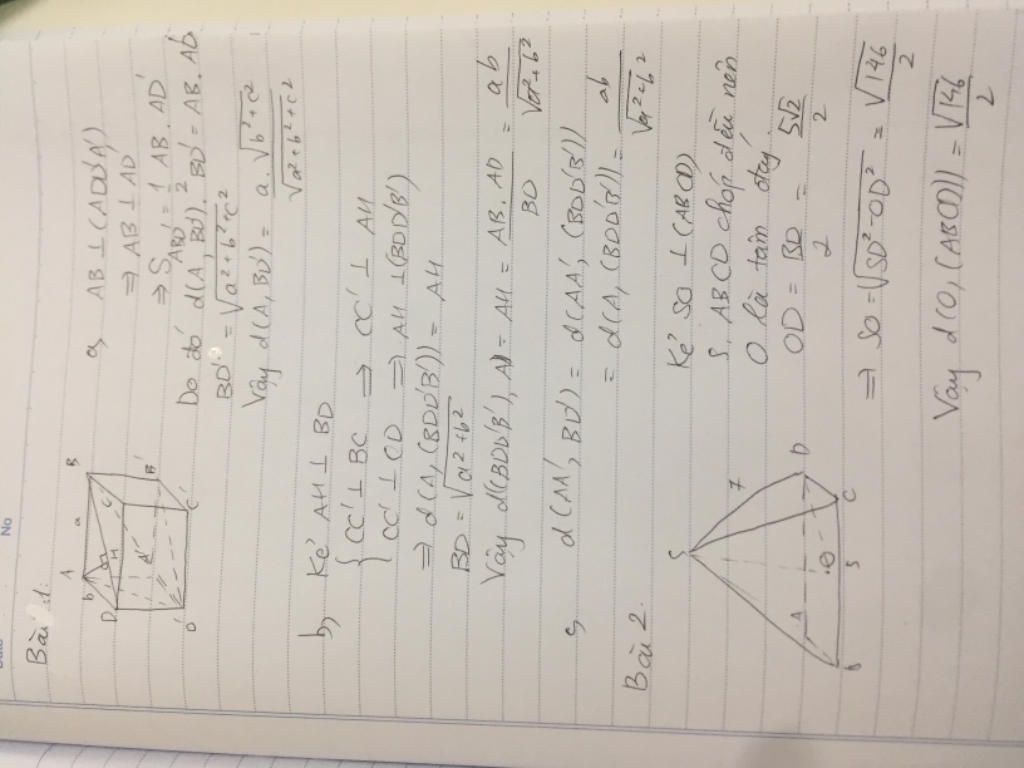 No
Bài 1:
A a B
b c
D H C
A' B'
D' C'
a, AB ⊥ (ADD'A')
⇒ AB ⊥ AD'
⇒ S_ABD' = 1/2 AB. AD'
Do đó d(A, BD'). BD' = AB. AD'
BD' = √(a²+b²+c²)
Vậy d(A, BD') = a.√(b²+c²) / √(a²+b²+c²)
b, Kẻ AH ⊥ BD
{ CC' ⊥ BC ⇒ CC' ⊥ AH
CC' ⊥ CD ⇒ AH ⊥ (BDD'B')
⇒ d(A, (BDD'B')) = AH
BD = √(a²+b²)
Vậy d((BDD'B'), A) = AH = AB. AD / BD = ab / √(a²+b²)
c, d(AA', BD') = d(AA', (BDD'B'))
= d(A, (BDD'B')) = ab / √(a²+b²)
Bài 2.
S
7
A D
O
B 5 C
Kẻ SO ⊥ (ABCD)
S. ABCD chóp đều nên
O là tâm đáy
OD = BD / 2 = 5√2 / 2
⇒ SO = √(SD² - OD²) = √146 / 2
Vậy d(O, (ABCD)) = √146 / 2